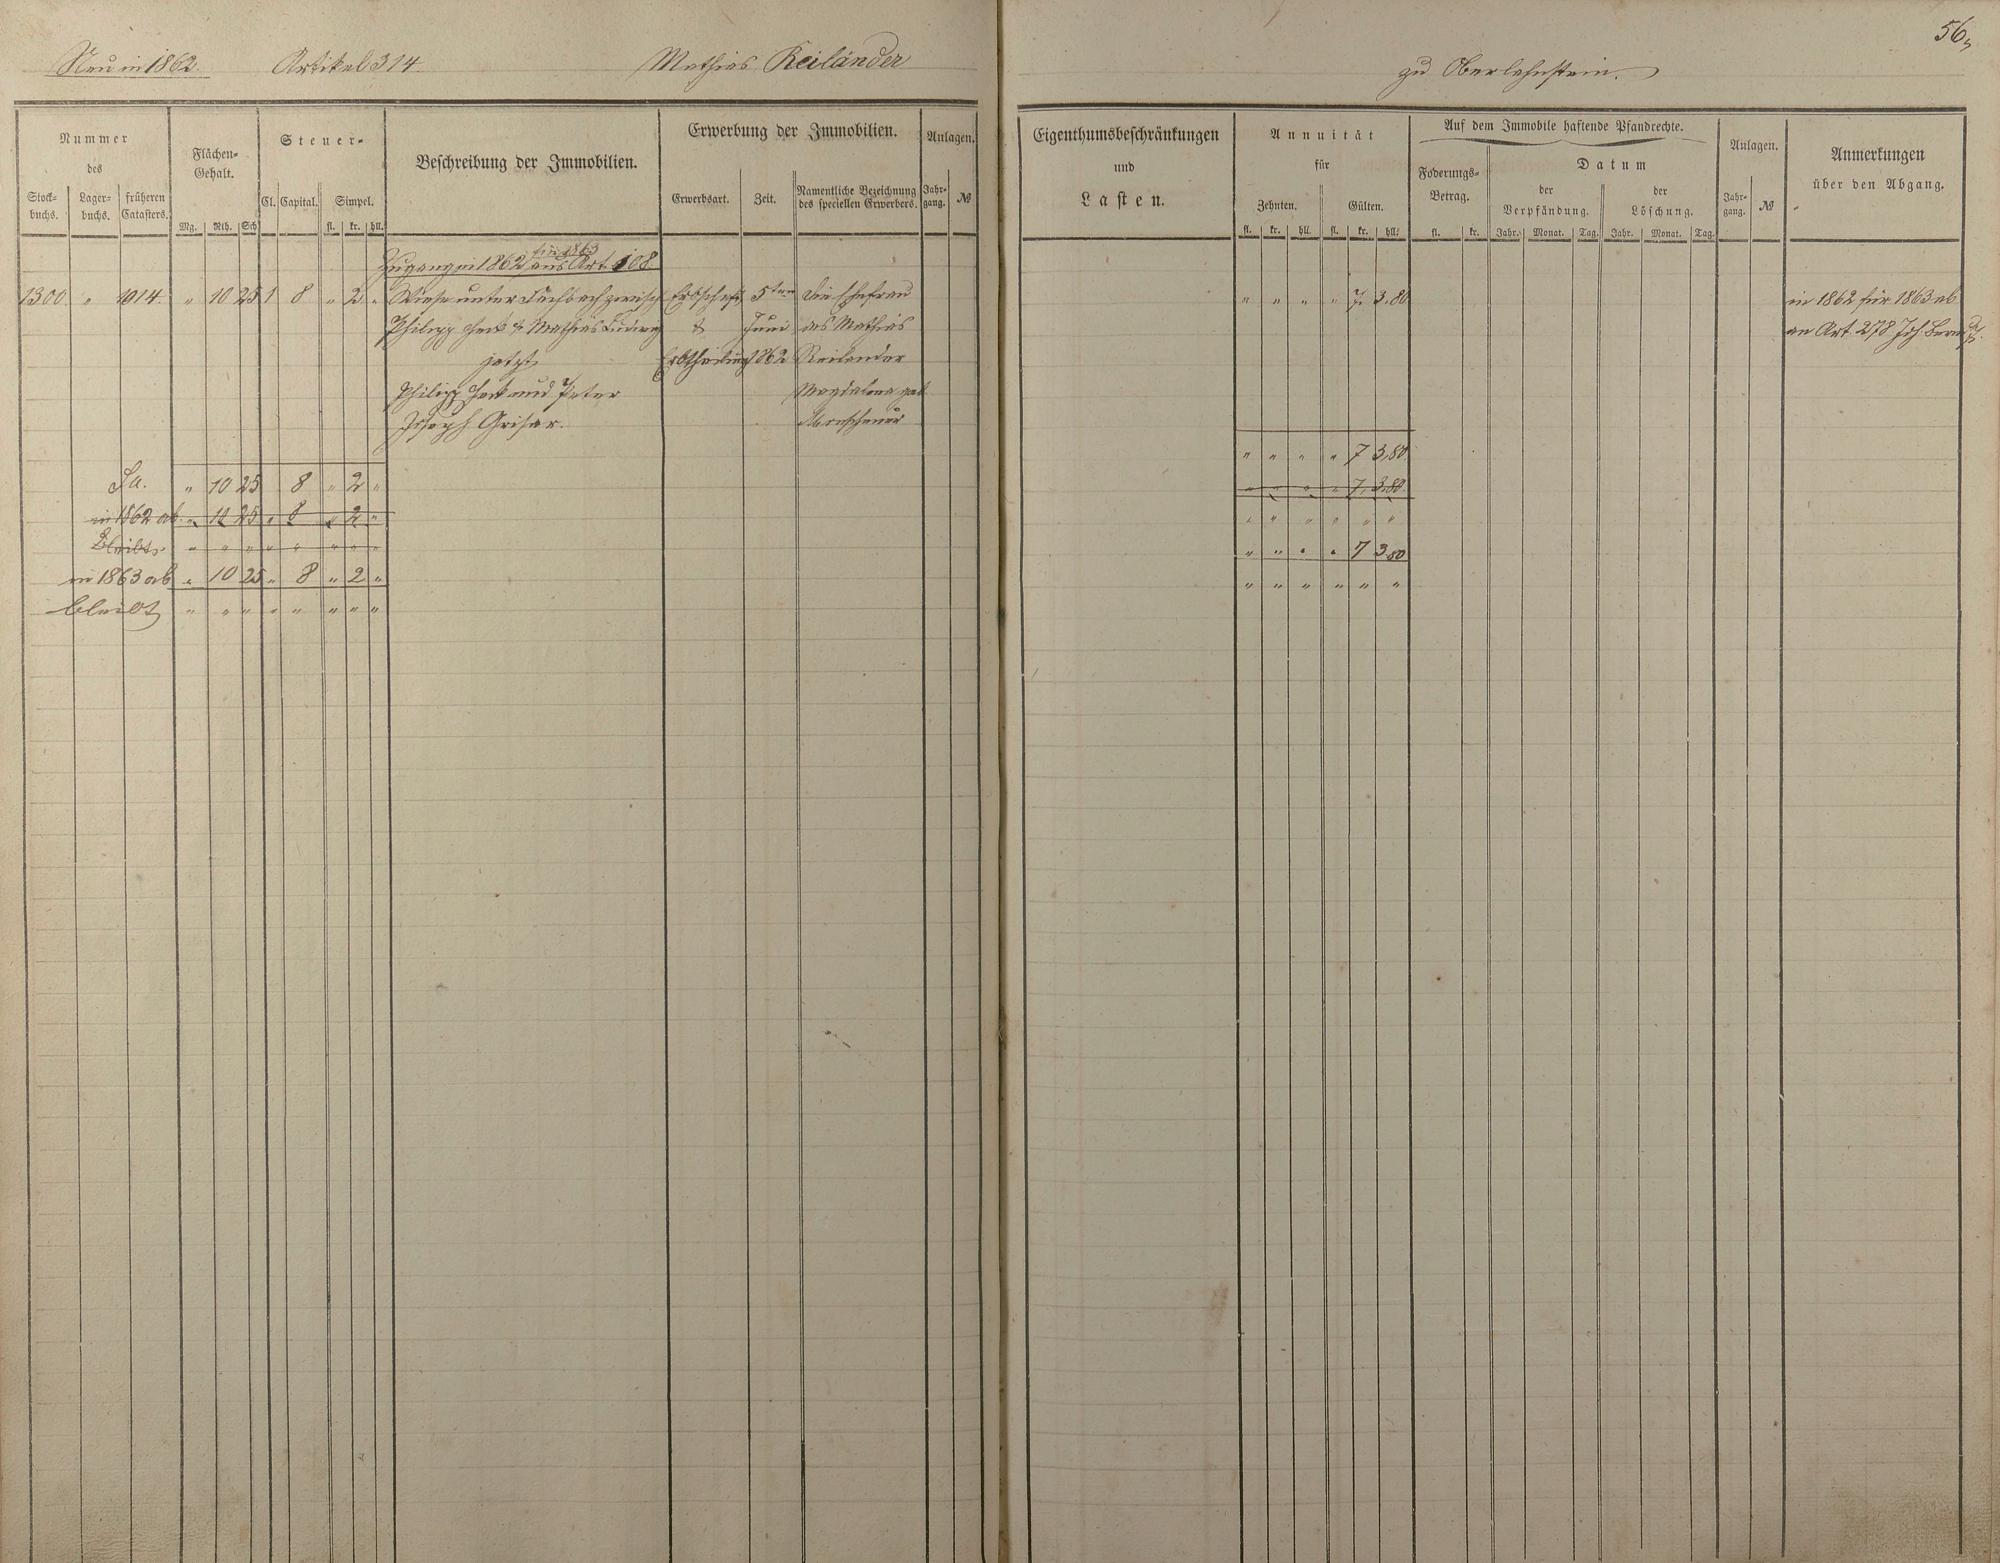 56,
Neu in 1862. Artikel 314 Mathias Reiländer zu Oberlahnstein.
Nummer des
Stockbuchs. Lagerbuchs. früheren Catasters.
Flächen-Gehalt.
Mg. Rth. Sch
Steuer-
Cl. Capital. Simpel.
fl. kr. hll.
Beschreibung der Immobilien.
Erwerbung der Immobilien.
Erwerbsart. Zeit. Namentliche Bezeichnung des speciellen Erwerbers.
Anlagen.
Jahrgang. №
Eigenthumsbeschränkungen
und
Lasten.
Annuität
für
Zehnten. Gülten.
fl. kr. hll. fl. kr. hll.
Auf dem Immobile haftende Pfandrechte.
Foderungs-Betrag.
fl. kr.
Datum
der Verpfändung. der Löschung.
Jahr. Monat. Tag. Jahr. Monat. Tag.
Anlagen.
Jahrgang. №
Anmerkungen
über den Abgang.
für 1863
Zugang in 1862 aus Art. 108
1300. " 1014. " 10 25 1 8 " 2 " Wiese unter zwisch Erbschaft 5ten die Ehefrau " " " " 7. 3,80 in 1862 für 1863 ab
Philipp Heck & Mathias Ludwig & Juni des Mathias an Art. 278 Joh.
jetzt Erbtheilung 1862 Reilender
Philipp Heck und Peter Magdalena geb
Joseph Grisar.
" " " " 7 3,80
Sa. " 10 25 8 " 2 "
" " " " 7. 3,80.
in 1862 ab. " 10 25 " 8 " 2 "
" " " " " "
Bleibt. " " " " " " " "
" " " " 7 3 80
in 1863 ab " 10 25 " 8 " 2 "
" " " " " "
bleibt " " " " " " " "